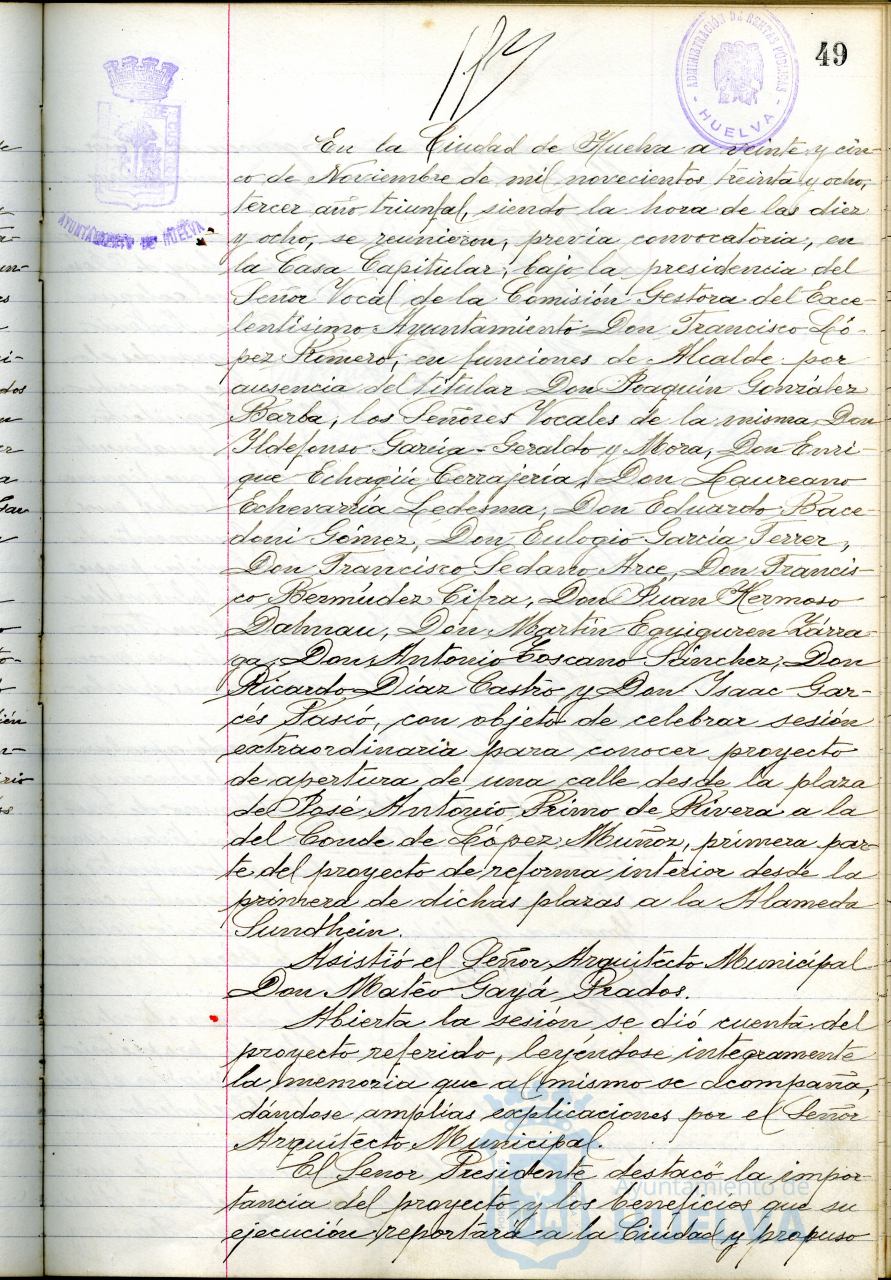 49
ADMINISTRACIÓN DE RENTAS PÚBLICAS
- HUELVA -
AYUNTAMIENTO DE HUELVA
En la Ciudad de Huelva a veinte y cin-
co de Noviembre de mil novecientos treinta y ocho,
tercer año triunfal, siendo la hora de las diez
y ocho, se reunieron, previa convocatoria, en
la Casa Capitular, bajo la presidencia del
Señor Vocal de la Comisión Gestora del Exce-
lentísimo Ayuntamiento Don Francisco Ló-
pez Romero, en funciones de Alcalde por
ausencia del titular Don Joaquín González
Barba, los Señores Vocales de la misma Don
Ildefonso García-Geraldo y Mora, Don Enri-
que Echagüe Cerrajería, Don Laureano
Echevarría Ledesma, Don Eduardo Bace-
doni Gómez, Don Eulogio García Ferrer,
Don Francisco Sedano Arce, Don Francis-
co Bermúdez Cifra, Don Juan Hermoso
Dalmau, Don Martín Eguiguren Zárra-
ga, Don Antonio Toscano Sánchez, Don
Ricardo Díaz Castro y Don Isaac Gar-
cés Pasió, con objeto de celebrar sesión
extraordinaria para conocer proyecto
de apertura de una calle desde la plaza
de José Antonio Primo de Rivera a la
del Conde de López Muñoz, primera par-
te del proyecto de reforma interior desde la
primera de dichas plazas a la Alameda
Sundhein.
Asistió el Señor Arquitecto Municipal
Don Mateo Gayá Prados.
Abierta la sesión se dió cuenta del
proyecto referido, leyéndose integramente
la memoria que al mismo se acompaña,
dándose amplias explicaciones por el Señor
Arquitecto Municipal.
El Señor Presidente destacó la impor-
tancia del proyecto y los beneficios que su
ejecución reportará a la Ciudad y propuso
Ayuntamiento de
HUELVA